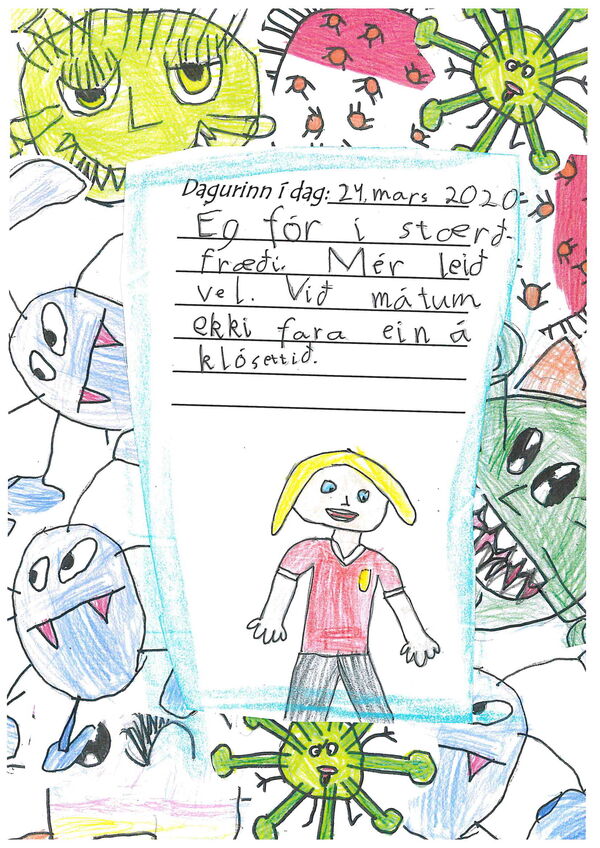 Dagurinn í dag: 24. mars 2020
Eg fór i stærð-
fræði. Mér leið
vel. Við mátum
ekki fara ein á
klósettið.